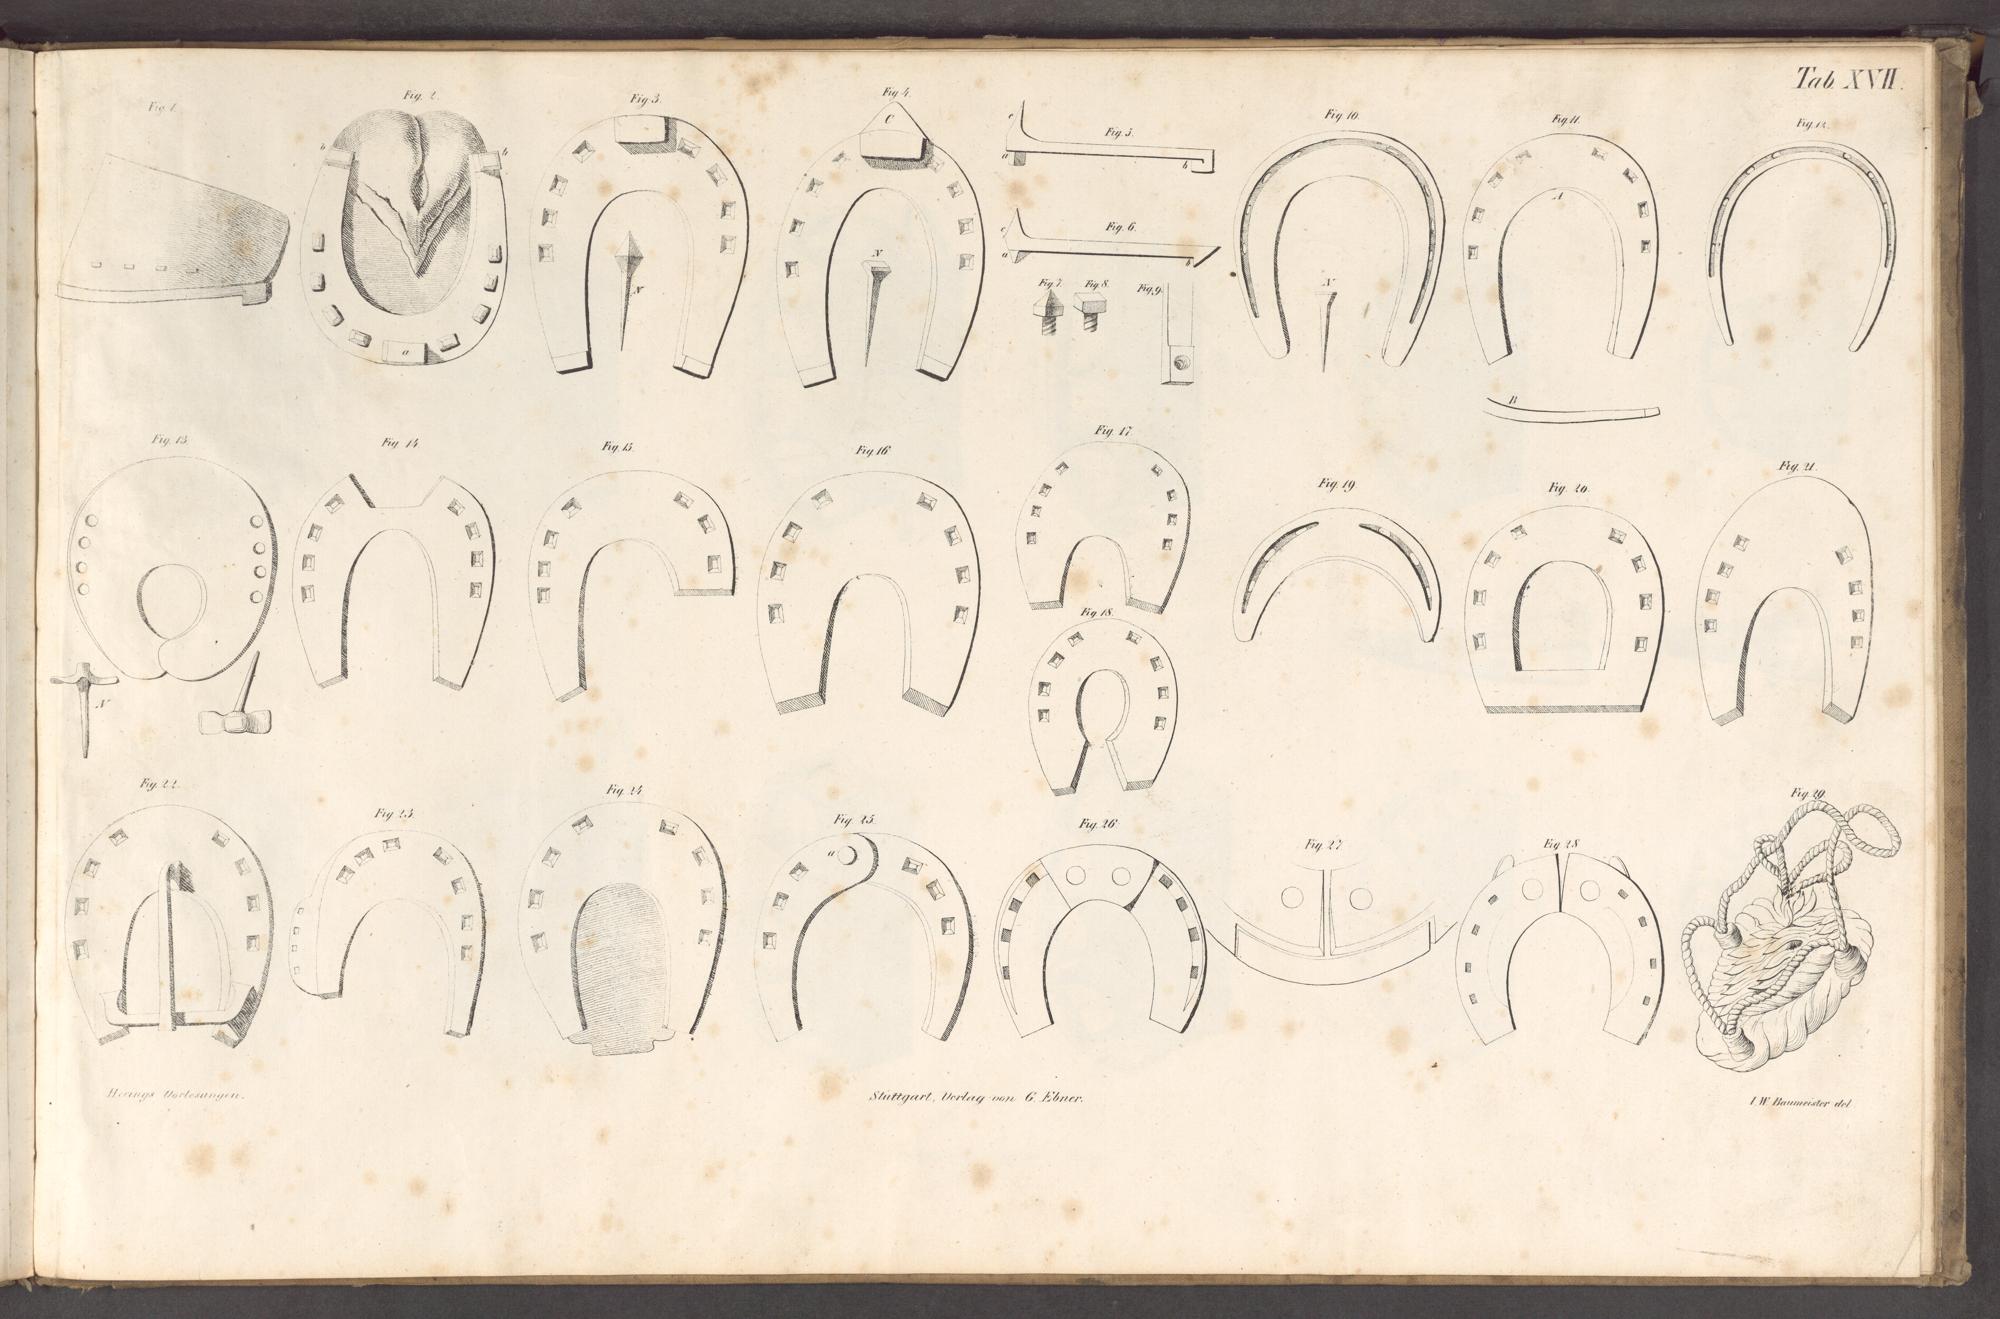 Tab. XVII.
Fig. 1.
Fig. 2.
b
b
a
Fig. 3.
N
Fig. 4.
C
N
Fig. 5.
c
a
b
Fig. 6.
c
a
b
Fig. 7.
Fig. 8.
Fig. 9.
Fig. 10.
N
Fig. 11.
A
B
Fig. 12.
Fig. 13.
N
Fig. 14
Fig. 15.
Fig. 16
Fig. 17.
Fig. 18.
Fig. 19
Fig. 20.
Fig. 21.
Fig. 22.
Fig. 23.
Fig. 24
Fig. 25.
a
Fig. 26
Fig. 27
Fig. 28
Fig. 29.
Herings Vorlesungen.
Stuttgart, Verlag von G. Ebner.
I. W. Baumeister del